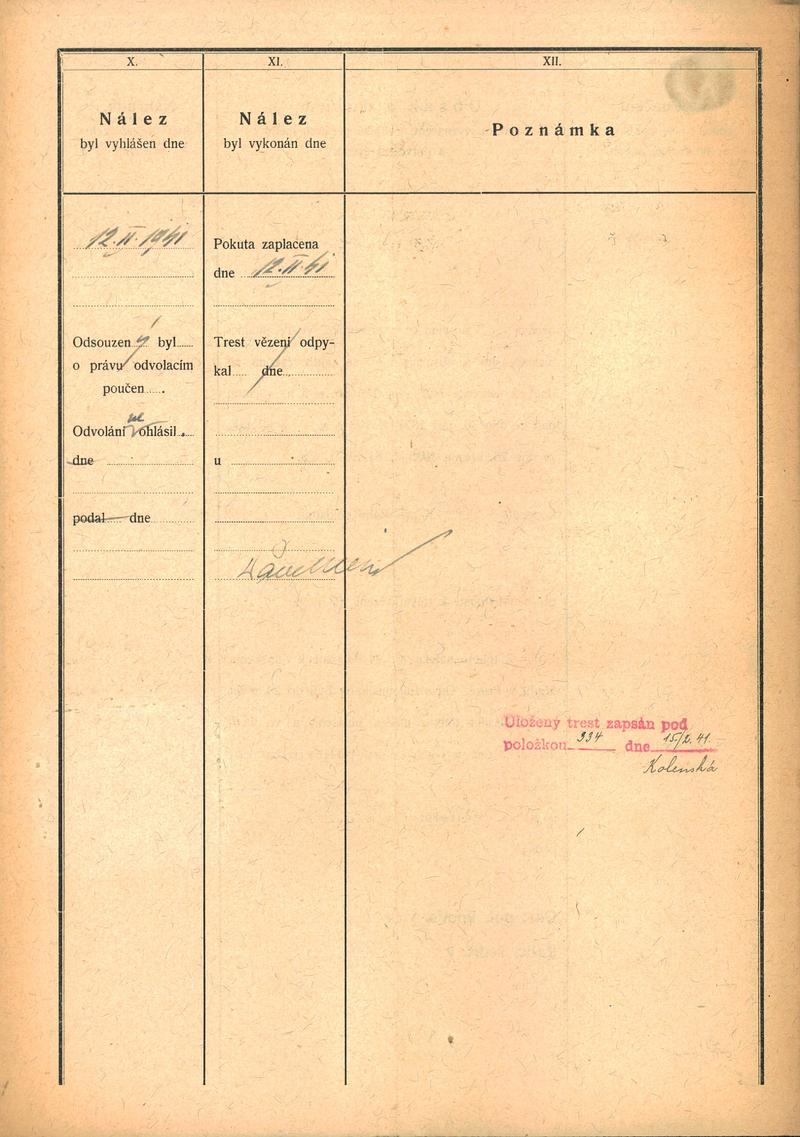 X.
Nález
byl vyhlášen dne
12.II.1941
Odsouzen ý byl
o právu odvolacím
poučen
Odvolání ne ohlásil
dne
podal dne
XI.
Nález
byl vykonán dne
Pokuta zaplacena
dne 12.II.41
Trest vězení odpy-
kal dne
u
XII.
Poznámka
Uložený trest zapsán pod
položkou 334 dne 15/2.41.
Kolenská